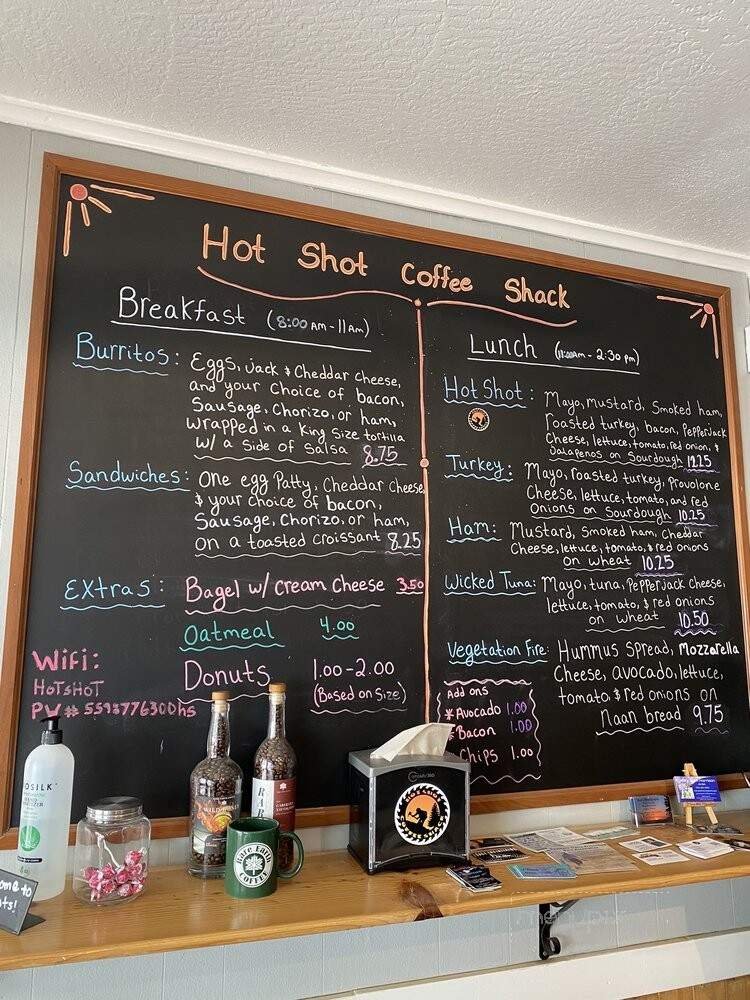 Hot Shot Coffee Shack
Breakfast (8:00 AM - 11 AM)
Burritos:
Eggs, Jack & Cheddar cheese,
and your choice of bacon,
Sausage, Chorizo, or ham,
wrapped in a King Size tortilla
w/ a side of salsa 8.75
Sandwiches:
One egg Patty, Cheddar cheese
& your choice of bacon,
Sausage, Chorizo, or ham,
on a toasted croissant 8.25
Extras:
Bagel w/ cream Cheese 3.50
Oatmeal 4.00
Donuts 1.00-2.00
(Based on Size)
Wifi:
HOTSHOT
PW# 5598776300hs
Lunch (11:00am - 2:30 pm)
Hot Shot:
Mayo, mustard, Smoked ham,
roasted turkey, bacon, Pepperjack
Cheese, lettuce, tomato, red onion, &
Jalapenos on Sourdough 12.25
Turkey:
Mayo, roasted turkey, provolone
Cheese, lettuce, tomato, and red
Onions on Sourdough 10.25
Ham:
Mustard, smoked ham, cheddar
Cheese, lettuce, tomato, & red onions
on wheat 10.25
Wicked Tuna:
Mayo, tuna, Pepperjack cheese,
lettuce, tomato, & red onions
on wheat 10.50
Vegetation Fire:
Hummus spread, Mozzarella
Cheese, avocado, lettuce,
tomato & red onions on
Naan bread 9.75
Add ons
*Avocado 1.00
Bacon 1.00
Chips 1.00
OSILK
WILD
RARE
Rare Earth
COFFEE